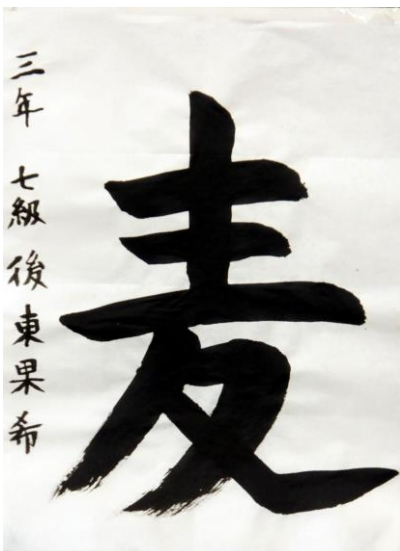 麦
三年 七級 後東果希